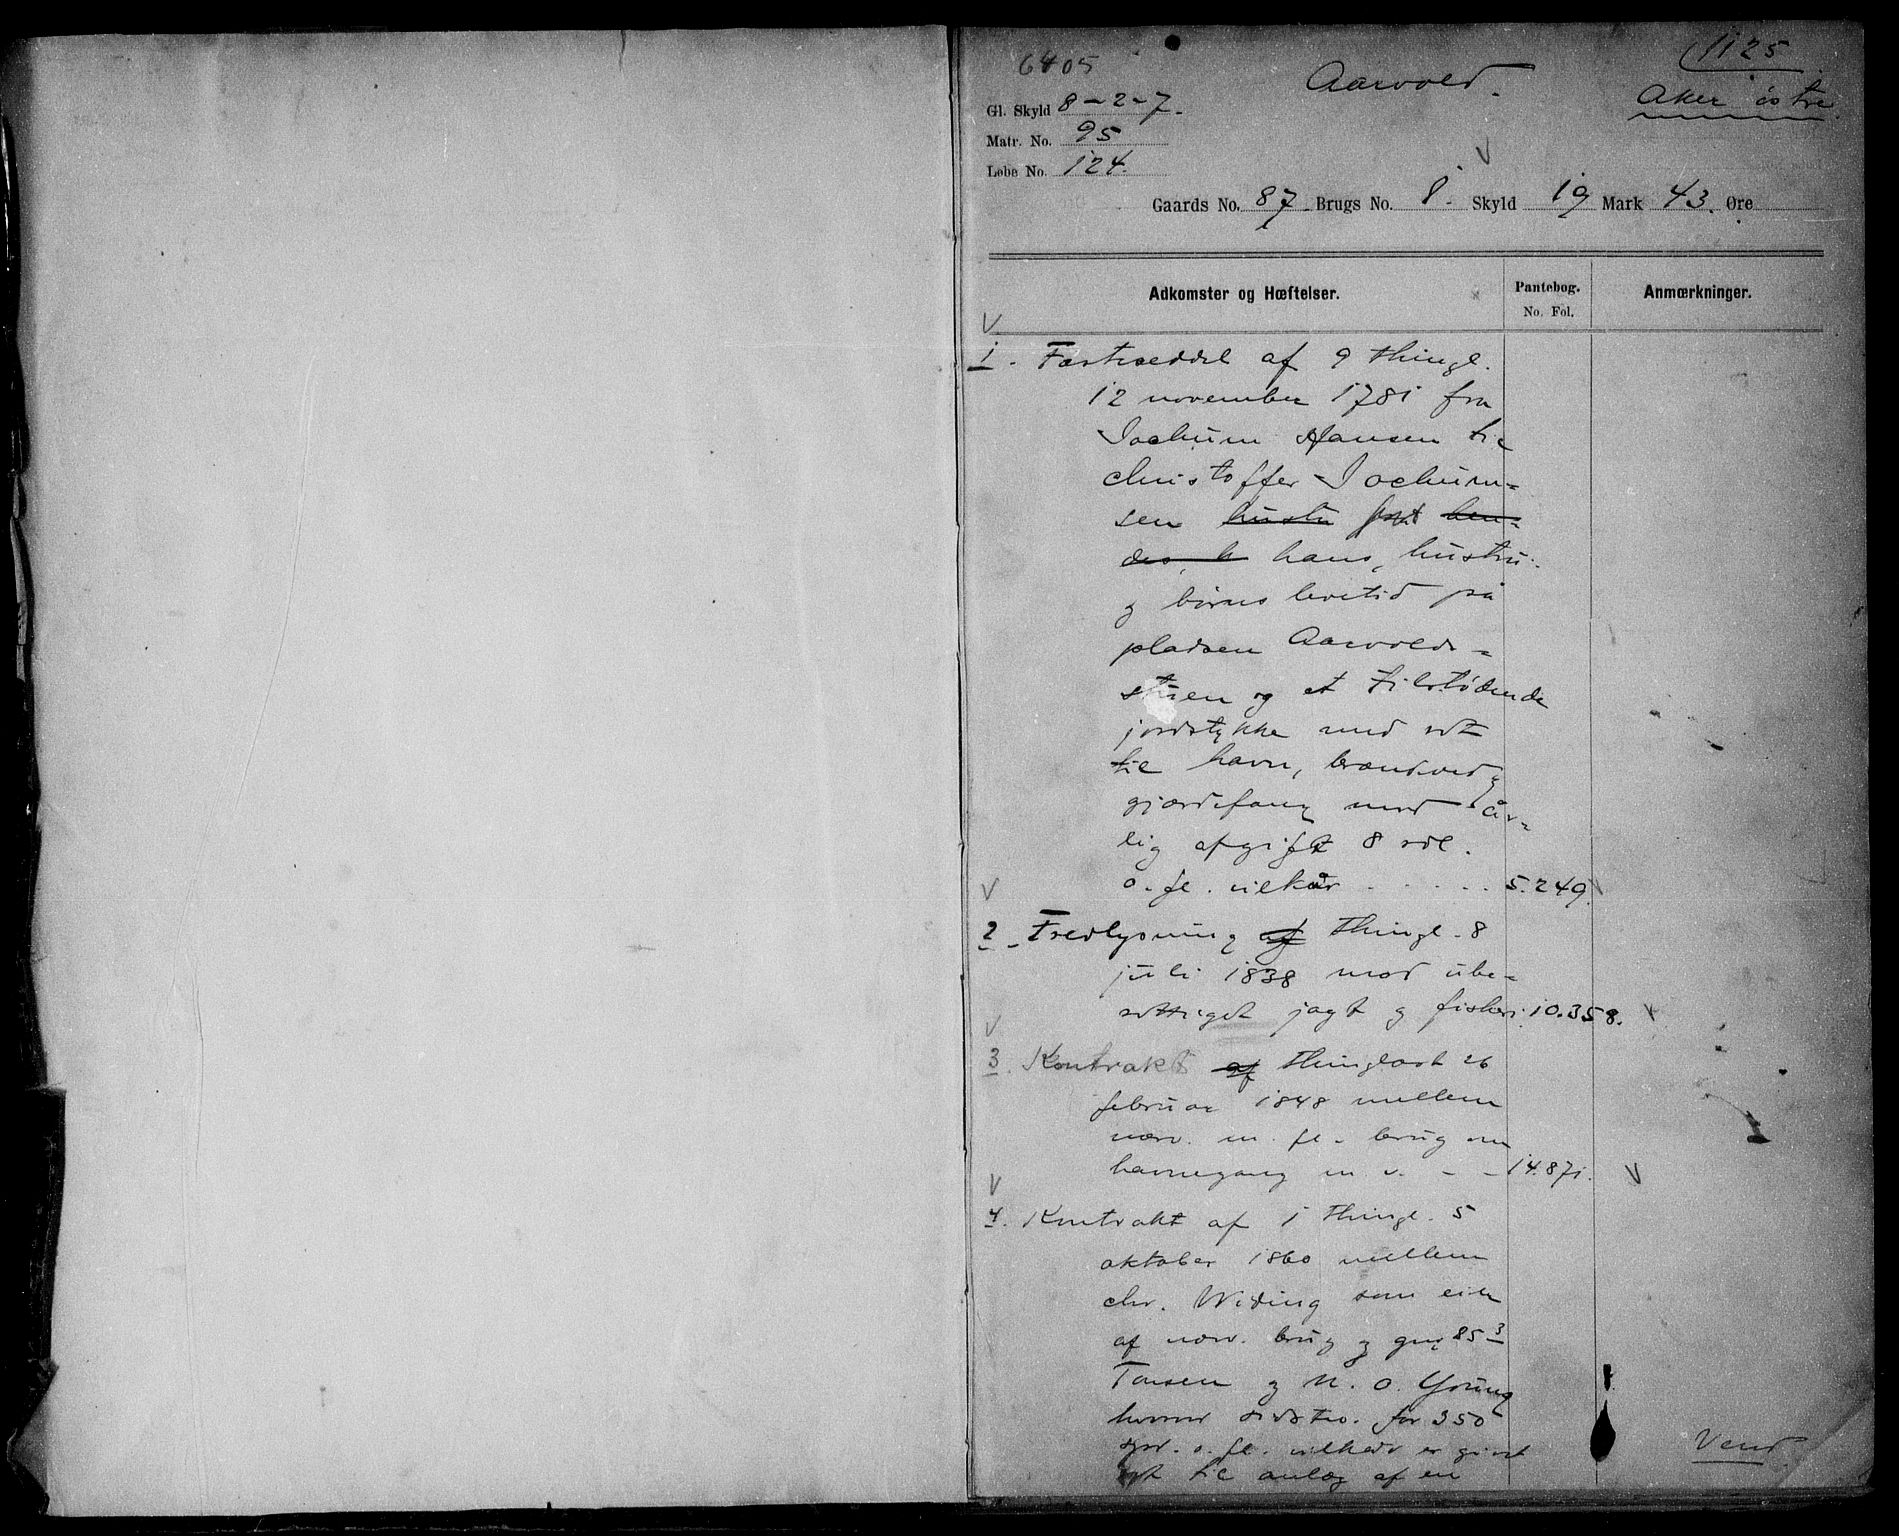 6405
1125
Aarvold.
Aker østre.
Gl. Skyld 8-2-7.
Matr. No. 95
Løbe No. 124.
Gaards No. 87. Brugs No. 1. Skyld 19 Mark 43. Øre
Adkomster og Hæftelser.
Pantebog.
No. Fol.
Anmærkninger.
1. Festeseddel af 9 thingl.
12 november 1781 fra
Jochum Hansen til
Christoffer Jochum=
sen hustru hen=
des, h hans, hustru
g børns levetid på
pladsen Aarvolds=
stuen og et tilstødende
jordstykke med ret
til havn, brændeved g
gjærdefang mod år=
lig afgift 8 rdl.
o. fl. vilkår . . . . . 5.249.
2. Fredlysning af thingl. 8
juli 1838 mod ube=
rettiget jagt g fiskeri 10.358.
3. Kontrakt af thinglæst 26
februar 1848 mellem
nærv. m. fl. brug om
havnegang m v. - - 14.871.
4. Kontrakt af 1 thingl. 5
oktober 1860 mellem
Chr. Widing som eier
af nærv. brug g gnr 85 3
Tonsen g N. O. Young
hvorved sidstnv. for 350
spd. o. fl. vilkår er givet
ret til anlæg af en
Vend